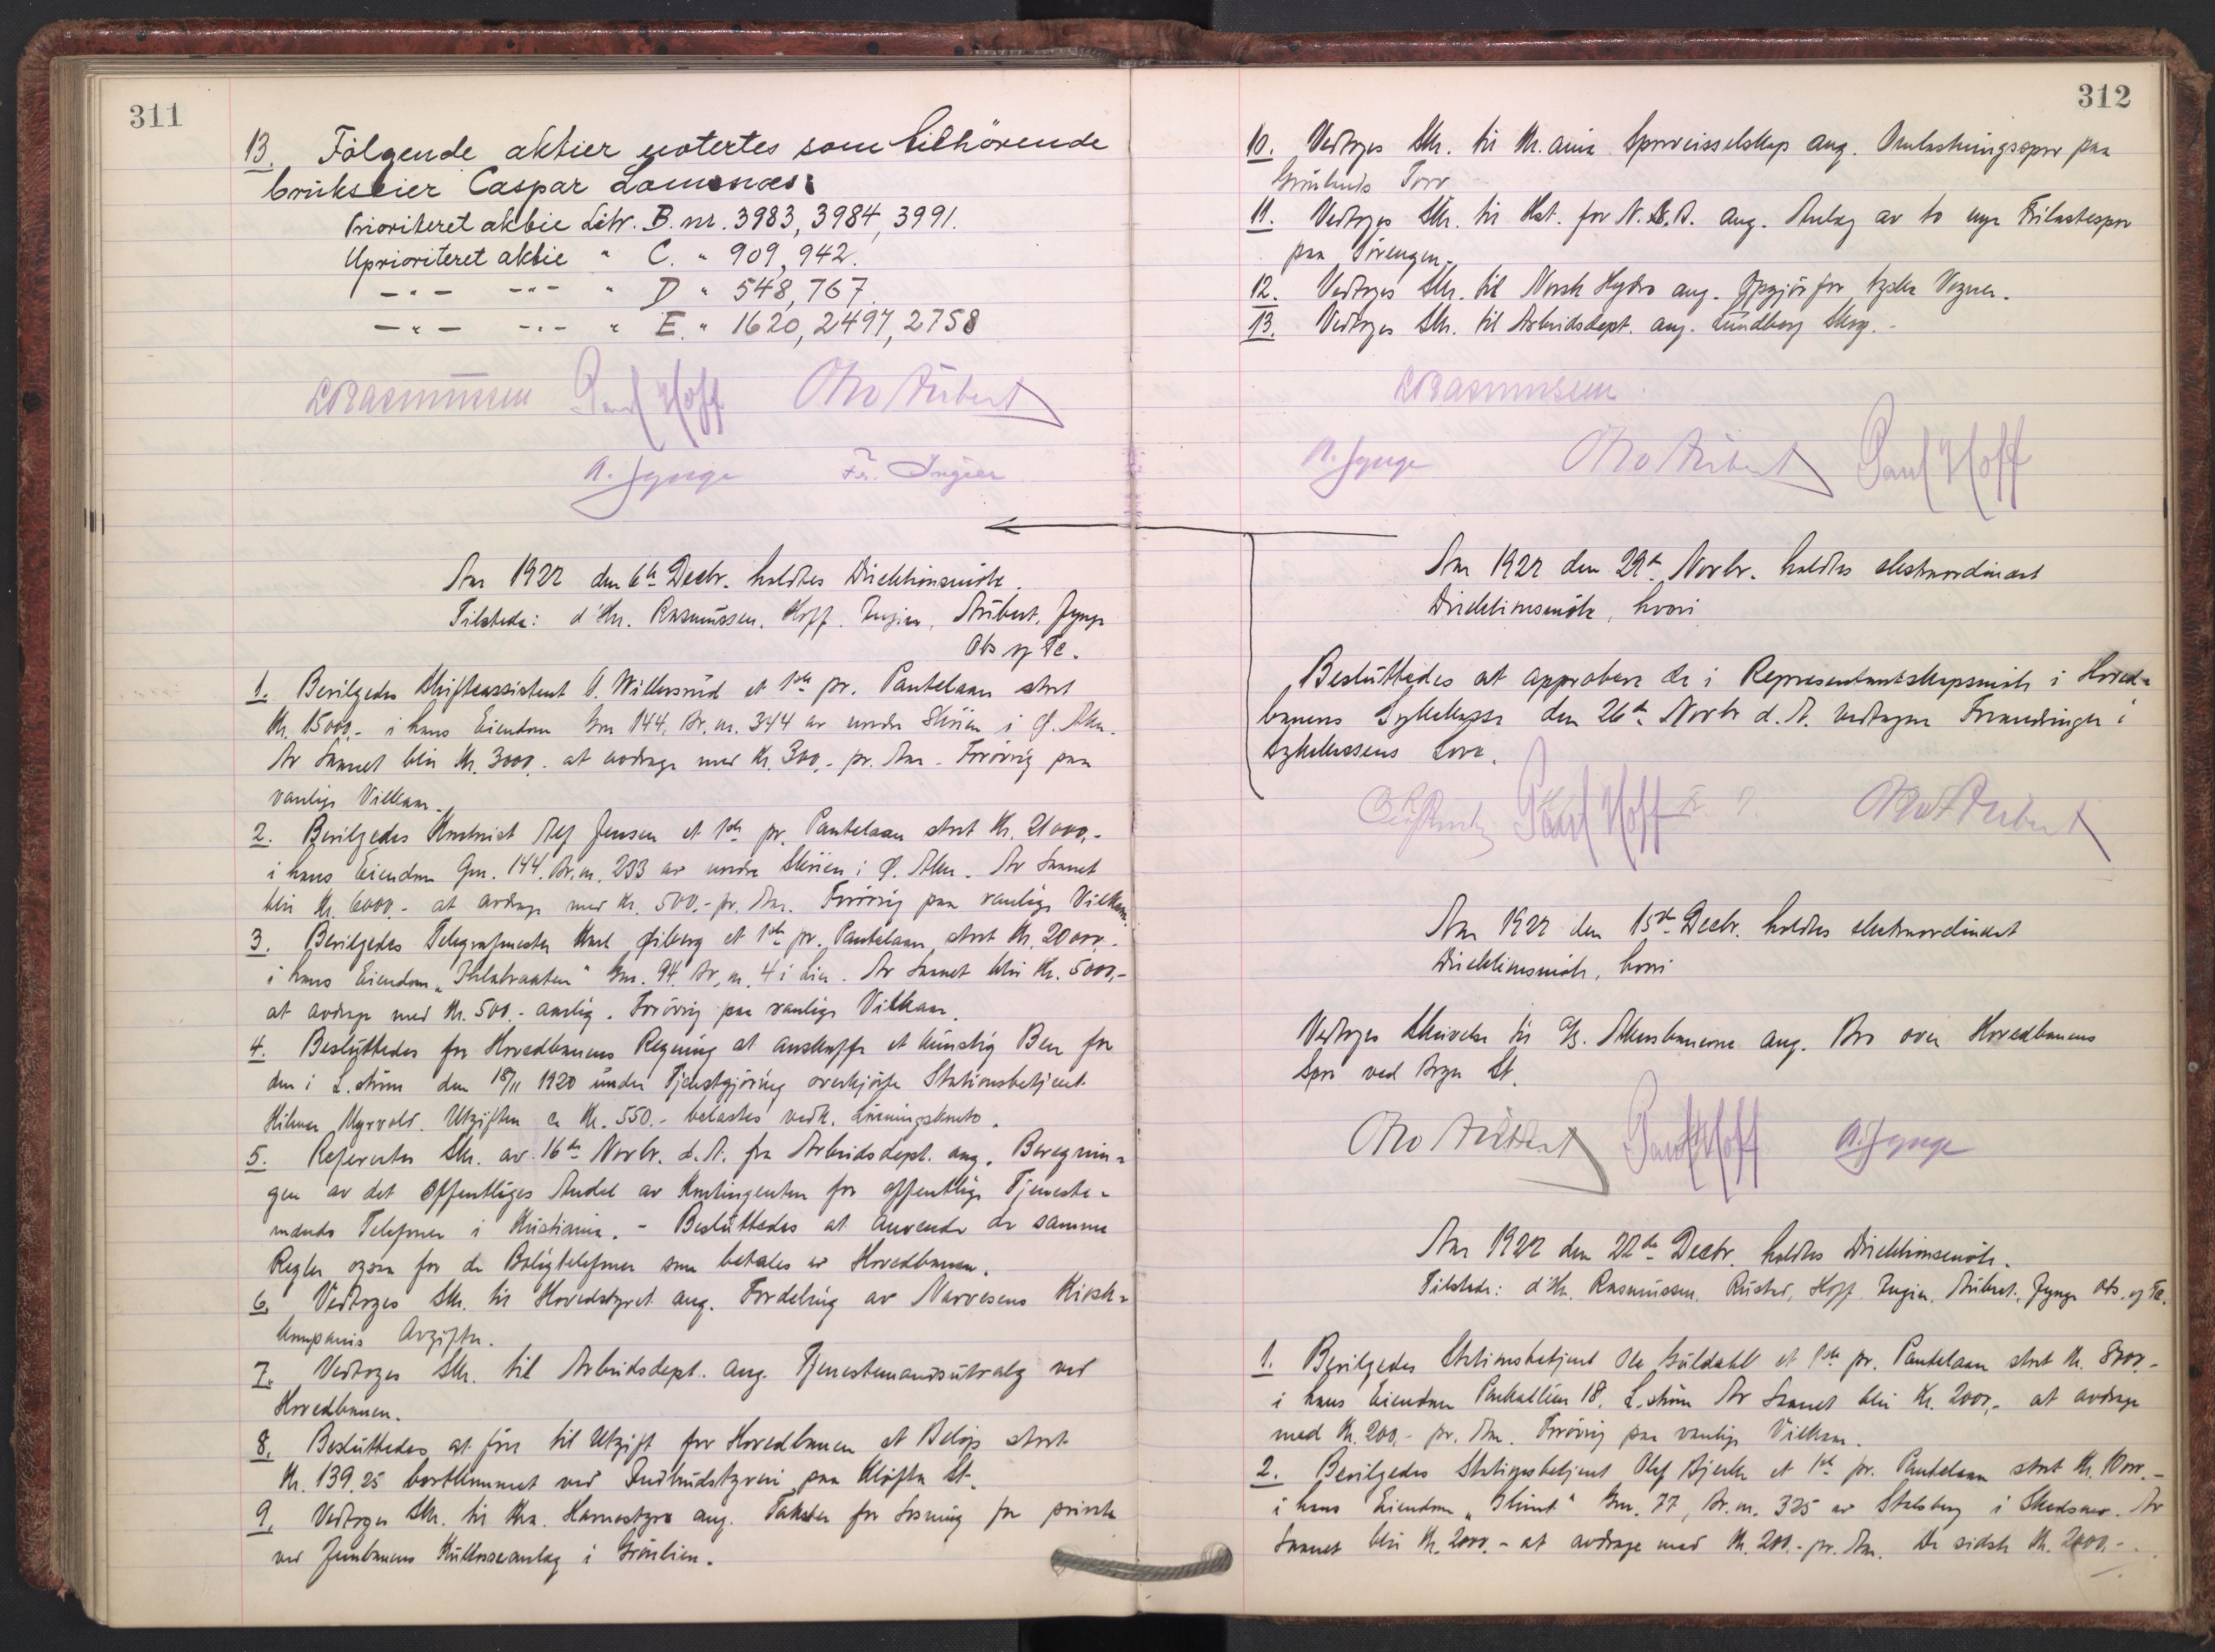 311
13. Følgende aktier notertes som tilhørende
brukseier Caspar Lammenæs:
Prioriteret aktie Litr. B. nr. 3983, 3984, 3991.
Uprioriteret aktie " C. " 909, 942.
—"— —"— " D " 548, 767.
—"— —"— " E. " 1620, 2497, 2758
Rasmussen Paul Hoff Otto Aubert
A. Jynge Fr. Ingier
Aar 1922 den 6te Decbr. holdtes Direktionsmöte.
Tilstede: d'Hrr. Rasmussen, Hoff, Ingier, Aubert, Jynge
Obs og Te.
1. Bevilgedes Skifteassistent O. Willersrud et 1ste pr. Pantelaan stort
Kr. 15000.- i hans Eiendom Gnr 144, Br. nr. 344 av nordre Skøien i Ø. Aker.
Av Laanet blir Kr. 3000.- at avdrage med Kr. 300.- pr. Aar. Forøvrig paa
vanlige Vilkaar.
2. Bevilgedes Kontorist Alf Jensen et 1ste pr. Pantelaan stort Kr. 21000.-
i hans Eiendom Gnr. 144. Br. nr. 233 av nordre Skøien i Ø. Aker. Av Laanet
blir Kr. 6000.- at avdrage med Kr. 500.- pr. Aar. Forøvrig paa vanlige Vilkaar.
3. Bevilgedes Telegrafmester Karl Øiberg et 1ste pr. Pantelaan stort Kr. 20000.-
i hans Eiendom " " Gnr. 94. Br. nr. 4 i Lier. Av Laanet blir Kr. 5000.-
at avdrage med Kr. 500.- aarlig. Forøvrig paa vanlige Vilkaar.
4. Besluttedes for Hovedbanens Regning at anskaffe et kunstig Ben for
den i L.strøm den 18/11 1920 under Tjenestgjøring overkjørte Stationsbetjent
Hilmar Myrvold. Utgiften ca Kr. 550.- belastes vedk. Lønningskonto.
5. Refererte Skr. av 16de Novbr. d. A. fra Arbeidsdept. ang. Beregnin-
gen av det offentliges Andel av Kontingenten for offentlige Tjeneste-
mænds Telefoner i Kristiania. - Besluttedes at anvende de samme
Regler ogsaa for de Boligtelefoner som betales av Hovedbanen.
6. Vedtoges Skr. til Hovedstyret ang. Fordeling av Narvesens Kiosk-
kompanis Avgifter.
7. Vedtoges Skr. til Arbeidsdept. ang. Tjenestemandsutvalg ved
Hovedbanen.
8. Besluttedes at føre til Utgift for Hovedbanen et Beløp stort
Kr. 139.25 bortkommet ved paa Kløfta St.
9. Vedtoges Skr. til Kra. Havnestyre ang. Takster for Losning for private
ved Jernbanens Kullosseanlæg i Grønlien.
312
10. Vedtoges Skr. til Kr.ania Sporveisselskap ang. Omlastningsspor paa
Grønlands Torv
11. Vedtoges Skr. til Hst. for N.S.B. ang. Anlæg av to nye Frilastespor
paa Lørengen.
12. Vedtoges Skr. til Norsk Hydro ang. Opgjør for tyske Vogner.
13. Vedtoges Skr. til Arbeidsdept. ang. Lundberg Skog.-
Rasmussen.
A. Jynge Otto Aubert Paul Hoff
Aar 1922 den 29de Novbr. holdtes ekstraordinært
Direktionsmöte, hvori
Besluttedes at approbere de i Representantskapsmöte i Hoved-
banens Sykekasse den 26de Novbr d. A. vedtagne Forandringer i
Sykekassens Love.
Paul Hoff Otto Aubert
Aar 1922 den 15de Decbr. holdtes ekstraordinært
Direktionsmöte, hvori
Vedtoges Skrivelse til A/S. Akersbanerne ang. Bro over Hovedbanens
Spor ved Bryn St.
Otto Aubert Paul Hoff A. Jynge
Aar 1922 den 22de Decbr. holdtes Direktionsmöte.
Tilstede: d'Hrr. Rasmussen, Rustad, Hoff, Ingier, Aubert, Jynge Obs. og Te.
1. Bevilgedes Stationsbetjent Ole Guldahl et 1ste pr. Pantelaan stort Kr. 8000.-
i hans Eiendom Parkalléen 18, L.strøm Av Laanet blir Kr. 2000.- at avdrage
med Kr. 200.- pr. Aar. Forøvrig paa vanlige Vilkaar.
2. Bevilgedes Stationsbetjent Olaf Bjerke et 1ste pr. Pantelaan stort Kr.
i hans Eiendom "Glimt" Gnr. 77, Br. nr. 325 av Stalsberg i Skedsmo. Av
Laanet blir Kr. 2000.- at avdrage med Kr. 200.- pr. Aar. De sidste Kr. 2000.-